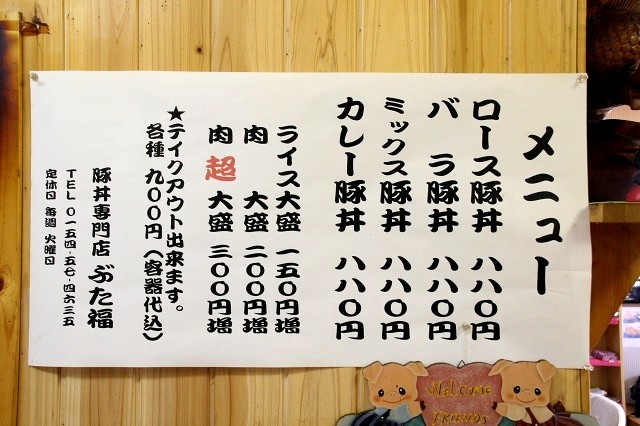 メニュー
ロース豚丼 八八〇円
バラ豚丼 八八〇円
ミックス豚丼 八八〇円
カレー豚丼 八八〇円
ライス大盛 一五〇円増
肉 大盛 二〇〇円増
肉 超 大盛 三〇〇円増
★テイクアウト出来ます。
各種 九〇〇円(容器代込)
豚丼専門店 ぶた福
TEL 〇一五四-五七-四六三五
定休日 毎週 火曜日
WELCOME
FRIENDS